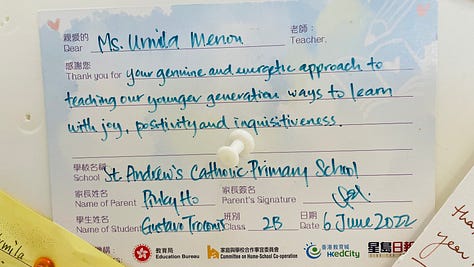 親愛的 老師：
Dear Ms. Urmila Menon Teacher,
感謝您
Thank you for your genuine and energetic approach to
teaching our younger generation ways to learn
with joy, positivity and inquisitiveness.
學校名稱
School St. Andrew's Catholic Primary School
家長姓名 家長簽名
Name of Parent Pinky Ho Parent's Signature
學生姓名 班別 日期
Name of Student Gustavo Class 2B Date 6 June 2022
機構：
教育局
Education Bureau
家庭與學校合作事宜委員會
Committee on Home-School Co-operation
香港教育城
HKedCity
星島日報
tha
year